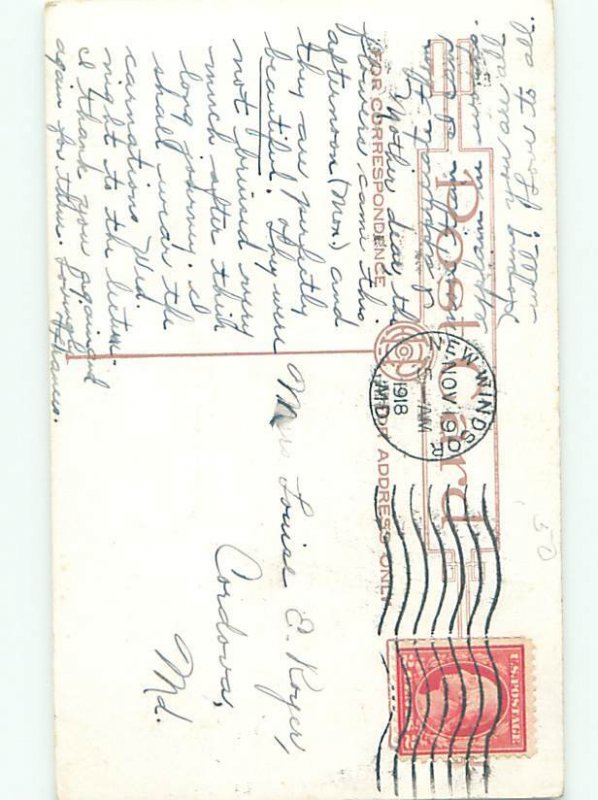 Post Card
FOR CORRESPONDENCE
FOR ADDRESS ONLY
NEW WINDSOR
NOV 19
5 AM
1918
MD.
U.S. POSTAGE
Mother dear the
flowers came this
afternoon (Mon.) and
they are perfectly
beautiful. They were
not bruised very
much after their
long journey. I
shall wear the
carnations Wed.
night to the lecture.
I thank you again and
again for them. Lovingly
Frances.
Mrs Louise E. Royer,
Cordova,
Md.
50